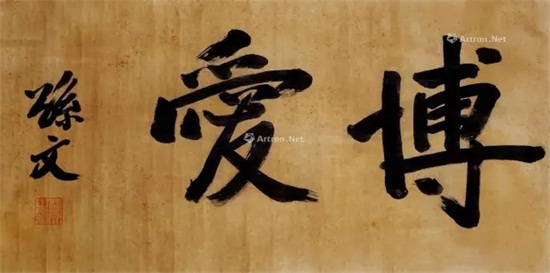 博愛
孫文
Artron.Net
Artron.Net
Artron.Net